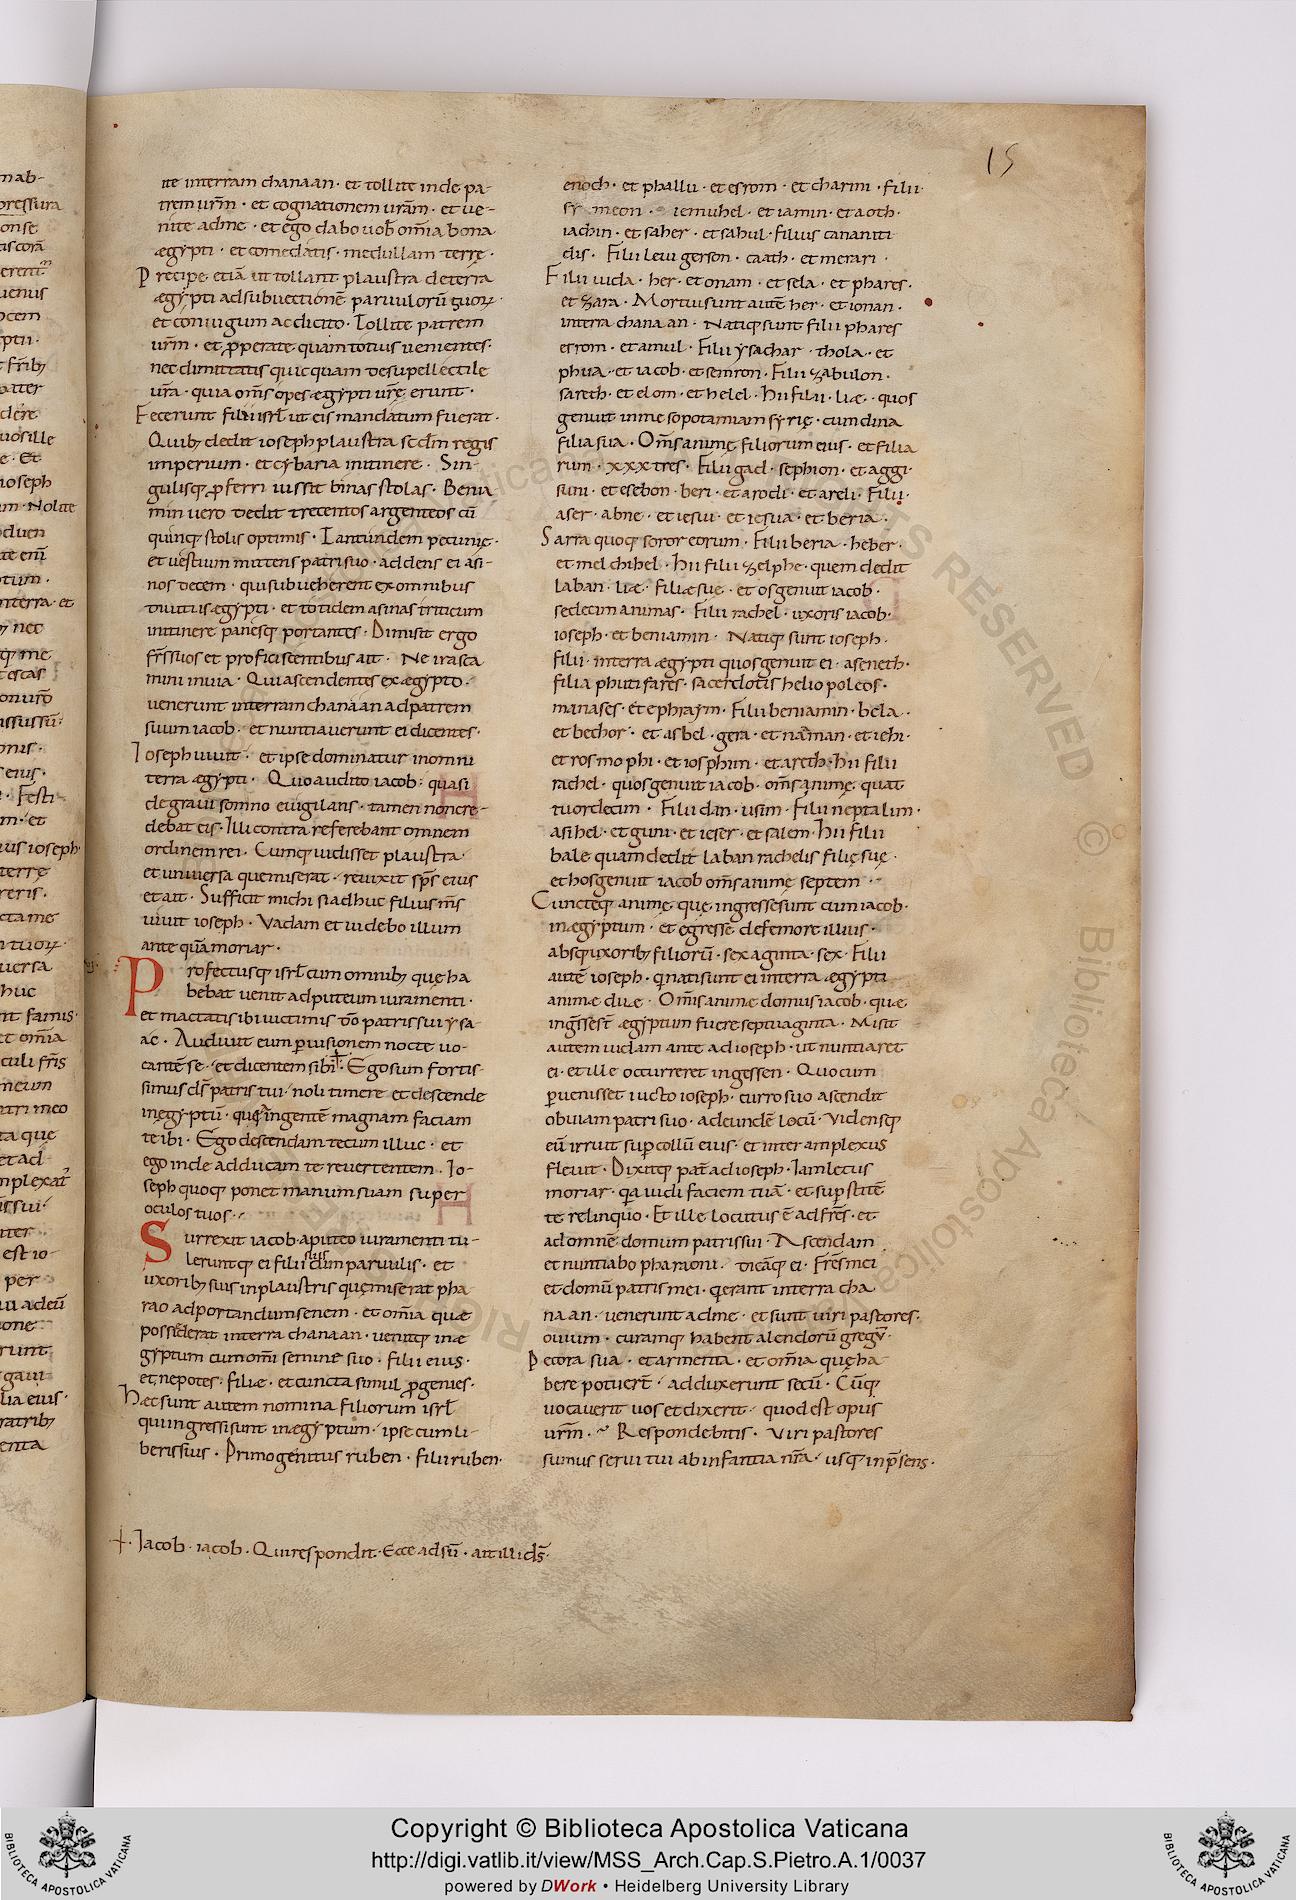 15
ite interram chanaan · et tollite inde pa-
trem ur̄m · et cognationem urām · et ue-
nite adme · et ego dabo uob̄ om̄ia bona
ægypti · et comedatis · medullam terrę ·
Precipe etiā ut tollant plaustra deterra
ægypti adsubuectionē paruulorū tuoꝝ ·
et coniugum acdicito · Tollite patrem
ur̄m · et ꝓperate quamtotius uenientes ·
nec dimittatis quicquam desupellectile
ur̄a · quia om̄s opes ægypti ur̄ę erunt ·
Fecerunt filii isrl̄ ut eis mandatum fuerat ·
Quibꝫ dedit ioseph plaustra scdm̄ regis
imperium · et cybaria initinere · Sin-
gulisqꝫ ꝓferri iussit binas stolas · Benia
min uero dedit trecentos argenteos cū
quinqꝫ stolis optimis · Tantundem pecunię ·
et uestium mittens patri suo · addens ei asi-
nos decem · qui subueherent ex omnibus
diuitiis ægypti · et totidem asinas triticum
initinere panesqꝫ portantes · Dimisit ergo
fr̄s suos et proficiscentibus ait · Ne irasca
mini inuia · Qui ascendentes exægypto ·
uenerunt interram chanaan adpatrem
suum iacob · et nuntiauerunt ei dicentes ·
Ioseph uiuit · et ipse dominatur inomni
terra ægypti · Quo audito iacob · quasi
degraui somno euigilans · tamen noncre-
debat eis · Illi contra referebant omnem
ordinem rei · Cumqꝫ uidisset plaustra ·
et uniuersa quemiserat · reuixit sp̄s eius
et ait · Sufficit michi siadhuc filius m̄s
uiuit ioseph · Vadam et uidebo illum
ante quā moriar ·
Profectusqꝫ isrl̄ cum omnibꝫ quę ha
bebat uenit adputeum iuramenti ·
et mactatis ibi uictimis dō patris sui ysa-
ac · Audiuit eum p̱uisionem nocte uo-
cantē se · et dicentem sibi · Ego sum fortis-
simus ds̄ patris tui · noli timere et descende
inęgyptū · quia ingentē magnam faciam
te ibi · Ego descendam tecum illuc · et
ego inde adducam te reuertentem · Io-
seph quoqꝫ ponet manum suam super
oculos tuos ·
Surrexit iacob aputeo iuramenti tu-
leruntqꝫ ei filii suis cum paruulis · et
uxoribꝫ suis inplaustris quęmiserat pha
rao adportandum senem · et om̄ia quæ
possederat interra chanaan · uenitqꝫ inæ
gyptum cum om̄i semine suo · filii eius ·
et nepotes · filiæ · et cuncta simul ꝓgenies ·
Hæc sunt autem nomina filiorum isrl̄
qui ingressi sunt inægyptum · ipse cum li-
beris suis · Primogenitus ruben · filii ruben ·
+ · Iacob · iacob · Qui respondit · Ecce adsū · ait illi ds̄ ·
enoch · et phallu · et esrom · et charmi · filii
symeon · iemuhel · et iamin · et aoth ·
iachin · et saher · et sahul · filius cananiti
dis · Filii leui gerson · caath · et merari ·
Filii iuda · her · et onam · et sela · et phares ·
et zara · Mortui sunt autē her · et ionan ·
interra chanaan · Natiqꝫ sunt filii phares
esrom · et amul · Filii ysachar · thola · et
phua · et iacob · et semron · Filii zabulon ·
sareth · et elom · et helel · Hii filii · liæ · quos
genuit inmesopotamiam syrię · cum dina
filia sua · Om̄s animę filiorum eius · et filia
rum · xxxtres · Filii gad · sephion · et aggi ·
suni · et esebon · beri · et arodi · et areli · Filii ·
aser · abne · et iesui · et iesua · et beria ·
Sarra quoqꝫ soror eorum · Filii beria · heber ·
et melchihel · Hii filii zelphe · quem dedit
laban · liæ · filiæ sue · et os genuit iacob ·
sedecim animas · Filii rachel · uxoris iacob ·
ioseph · et beniamin · Natiqꝫ sunt ioseph ·
filii · interra ægypti quos genuit ei · aseneth ·
filia phutifares · sacerdotis heliopoleos ·
manases · et ephraym · Filii beniamin · bela ·
et bechor · et asbel · gera · et naman · et iehi ·
et ros mo phi · et iosphim · et areth · Hii filii
rachel · quos genuit iacob · om̄s animę · quat
tuordecim · Filii dan · usim · Filii neptalim ·
asihel · et guni · et ieser · et salem · Hii filii
bale quam dedit laban rachelis filię suę ·
et hos genuit iacob om̄s animę septem ·
Cuncteqꝫ animę quę ingresse sunt cum iacob ·
inægyptum · et egressę defemore illius ·
absqꝫ uxoribꝫ filiorū · sexaginta · sex · Filii
autē ioseph · qui nati sunt ei interra ægypti
animæ duæ · Om̄s animæ domus iacob · quæ
ingr̄ssest ægyptum fuere septuaginta · Misit
autem iudam ante adioseph · ut nuntiaret
ei · et ille occurreret ingessen · Quocum
p̱uenisset iuncto ioseph · curro suo ascendit
obuiam patri suo · adeundē locū · Vidensqꝫ
eū irruit sup̱ collū eius · et inter amplexus
fleuit · Dixitqꝫ pat̄ adioseph · Iam letus
moriar · qa uidi faciem tuā · et sup̱stitē
te relinquo · Et ille locutus ē adfr̄es · et
adomnē domum patris sui · Ascendam ·
et nuntiabo pharaoni · dicāqꝫ ei · Fr̄es mei
et domū patris mei · qerant interra cha
naan · uenerunt adme · et sunt uiri pastores ·
ouium · curamqꝫ habent alendorū gregum ·
Pecora sua · et armenta · et om̄ia quęha
bere potuert̄ · adduxerunt secū · Cūqꝫ
uocauerit uos et dixerit · quod est opus
ur̄m · Respondebitis · Viri pastores
sumus serui tui abinfantia nr̄a · usqꝫ inp̄sens ·
Copyright © Biblioteca Apostolica Vaticana
http://digi.vatlib.it/view/MSS_Arch.Cap.S.Pietro.A.1/0037
powered by DWork • Heidelberg University Library
BIBLIOTECA APOSTOLICA VATICANA
BIBLIOTECA APOSTOLICA VATICANA